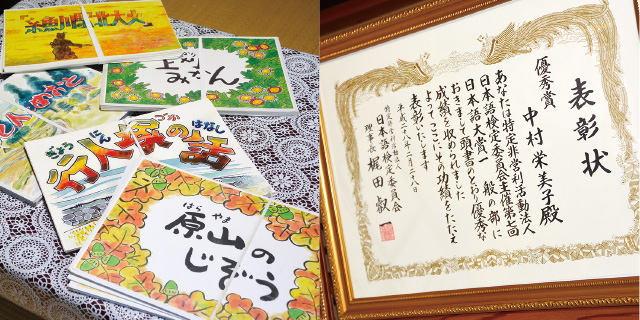 糸魚川の北大火
みかん
ぎょう にん づか はなし
行人塚の話
はら やま
原山の
じぞう
表彰状
優秀賞
中村栄美子殿
あなたは特定非営利活動法人
日本語検定委員会主催第七回
日本語大賞一般の部に
おきまして頭書のとおり優秀な
成績を収められました
よってここにその功績をたたえ
表彰いたします
平成二十八年二月二十八日
特定非営利活動法人
日本語検定委員会
理事長 梶田叡一